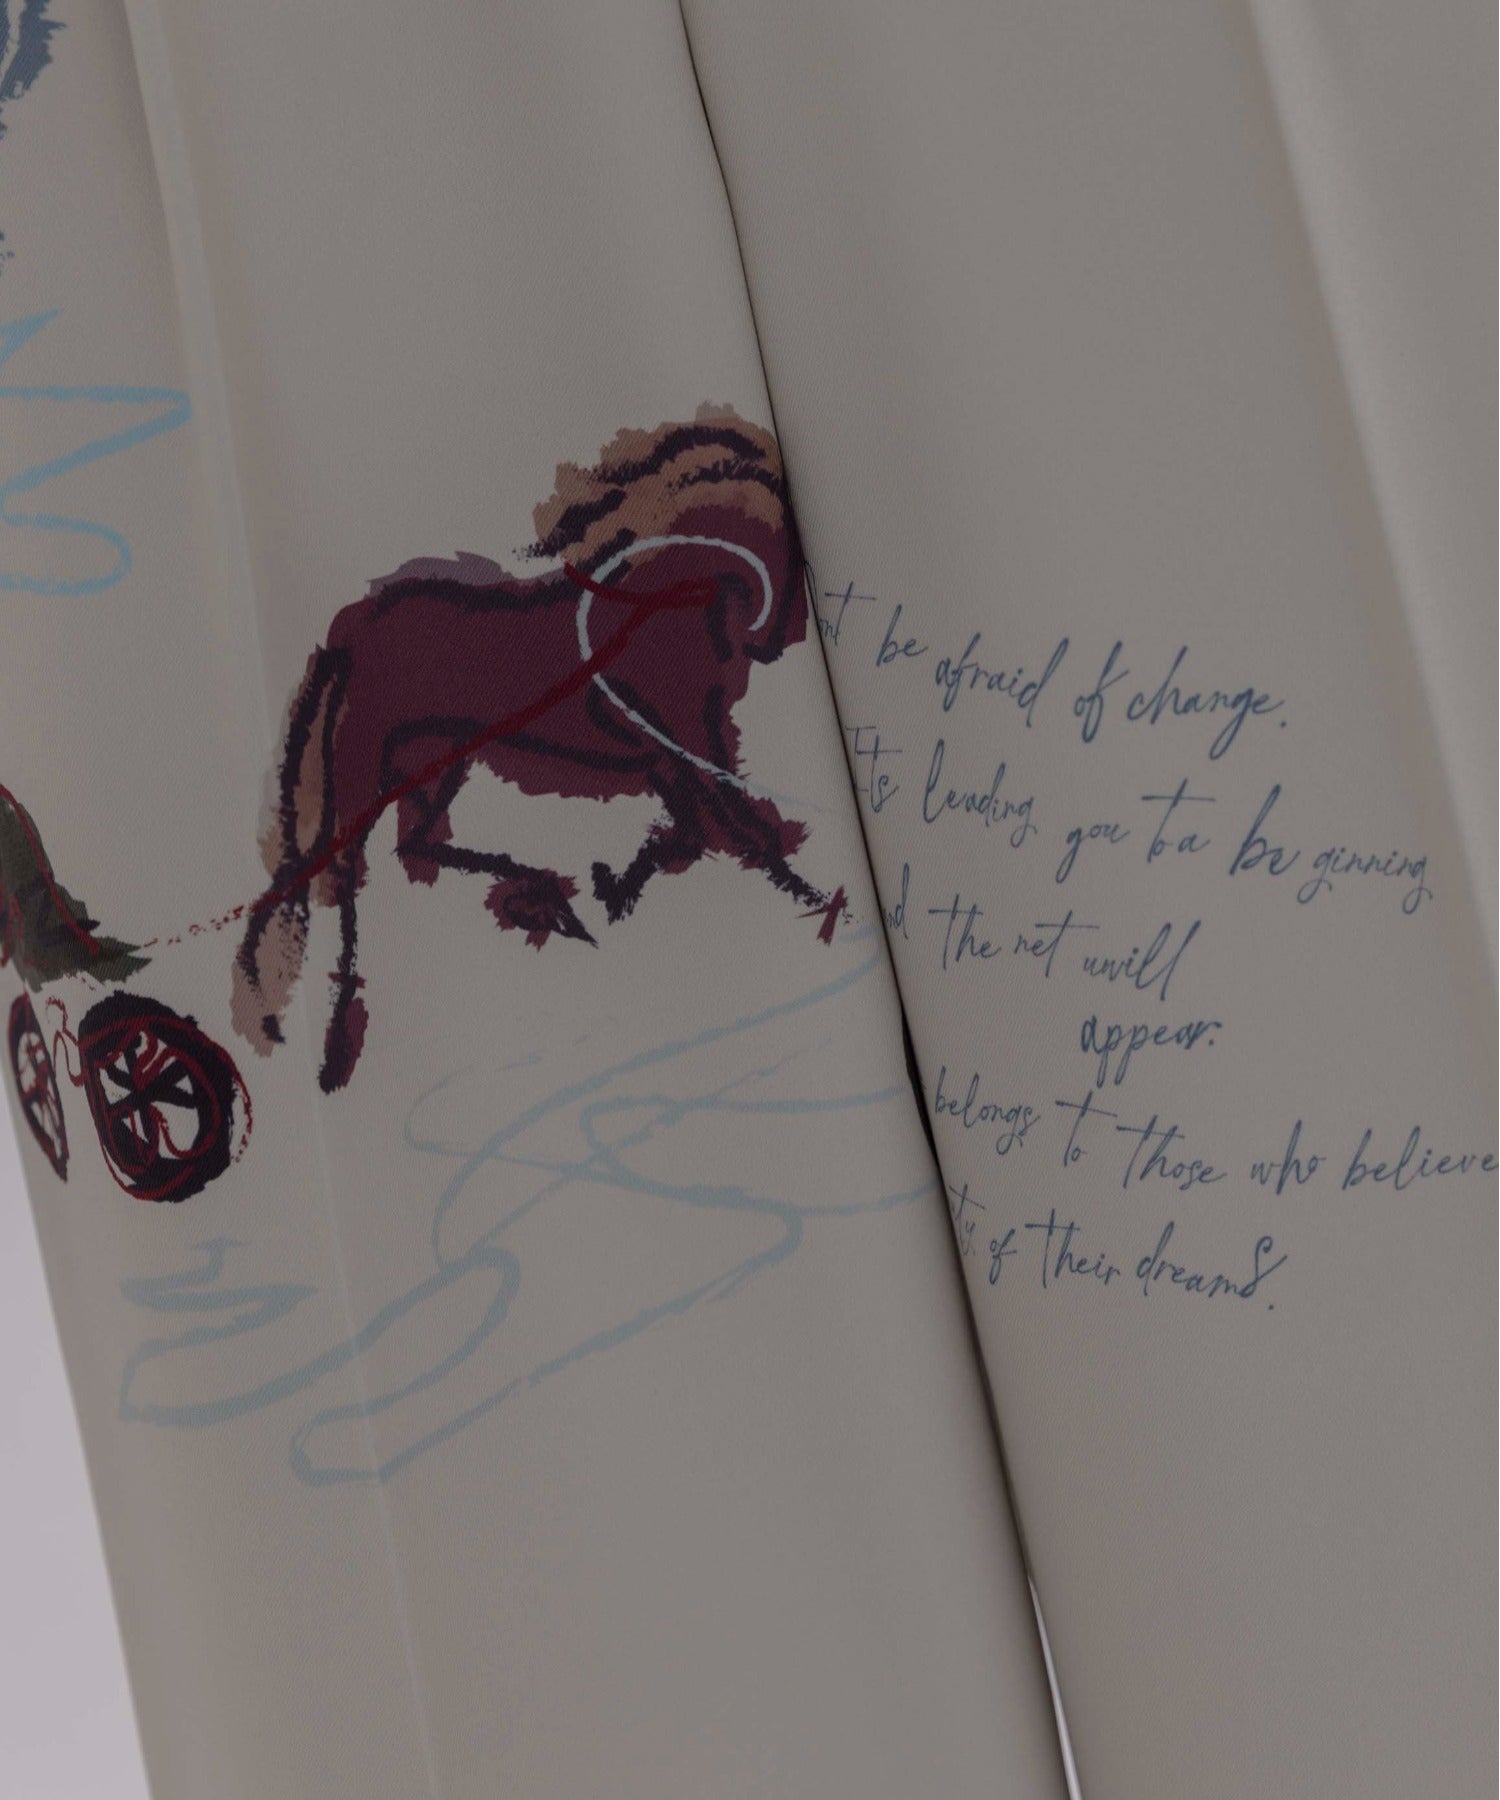 be afraid of change.
Its leading you to a be ginning
the net will
appear.
belongs to those who believe
of their dreams.